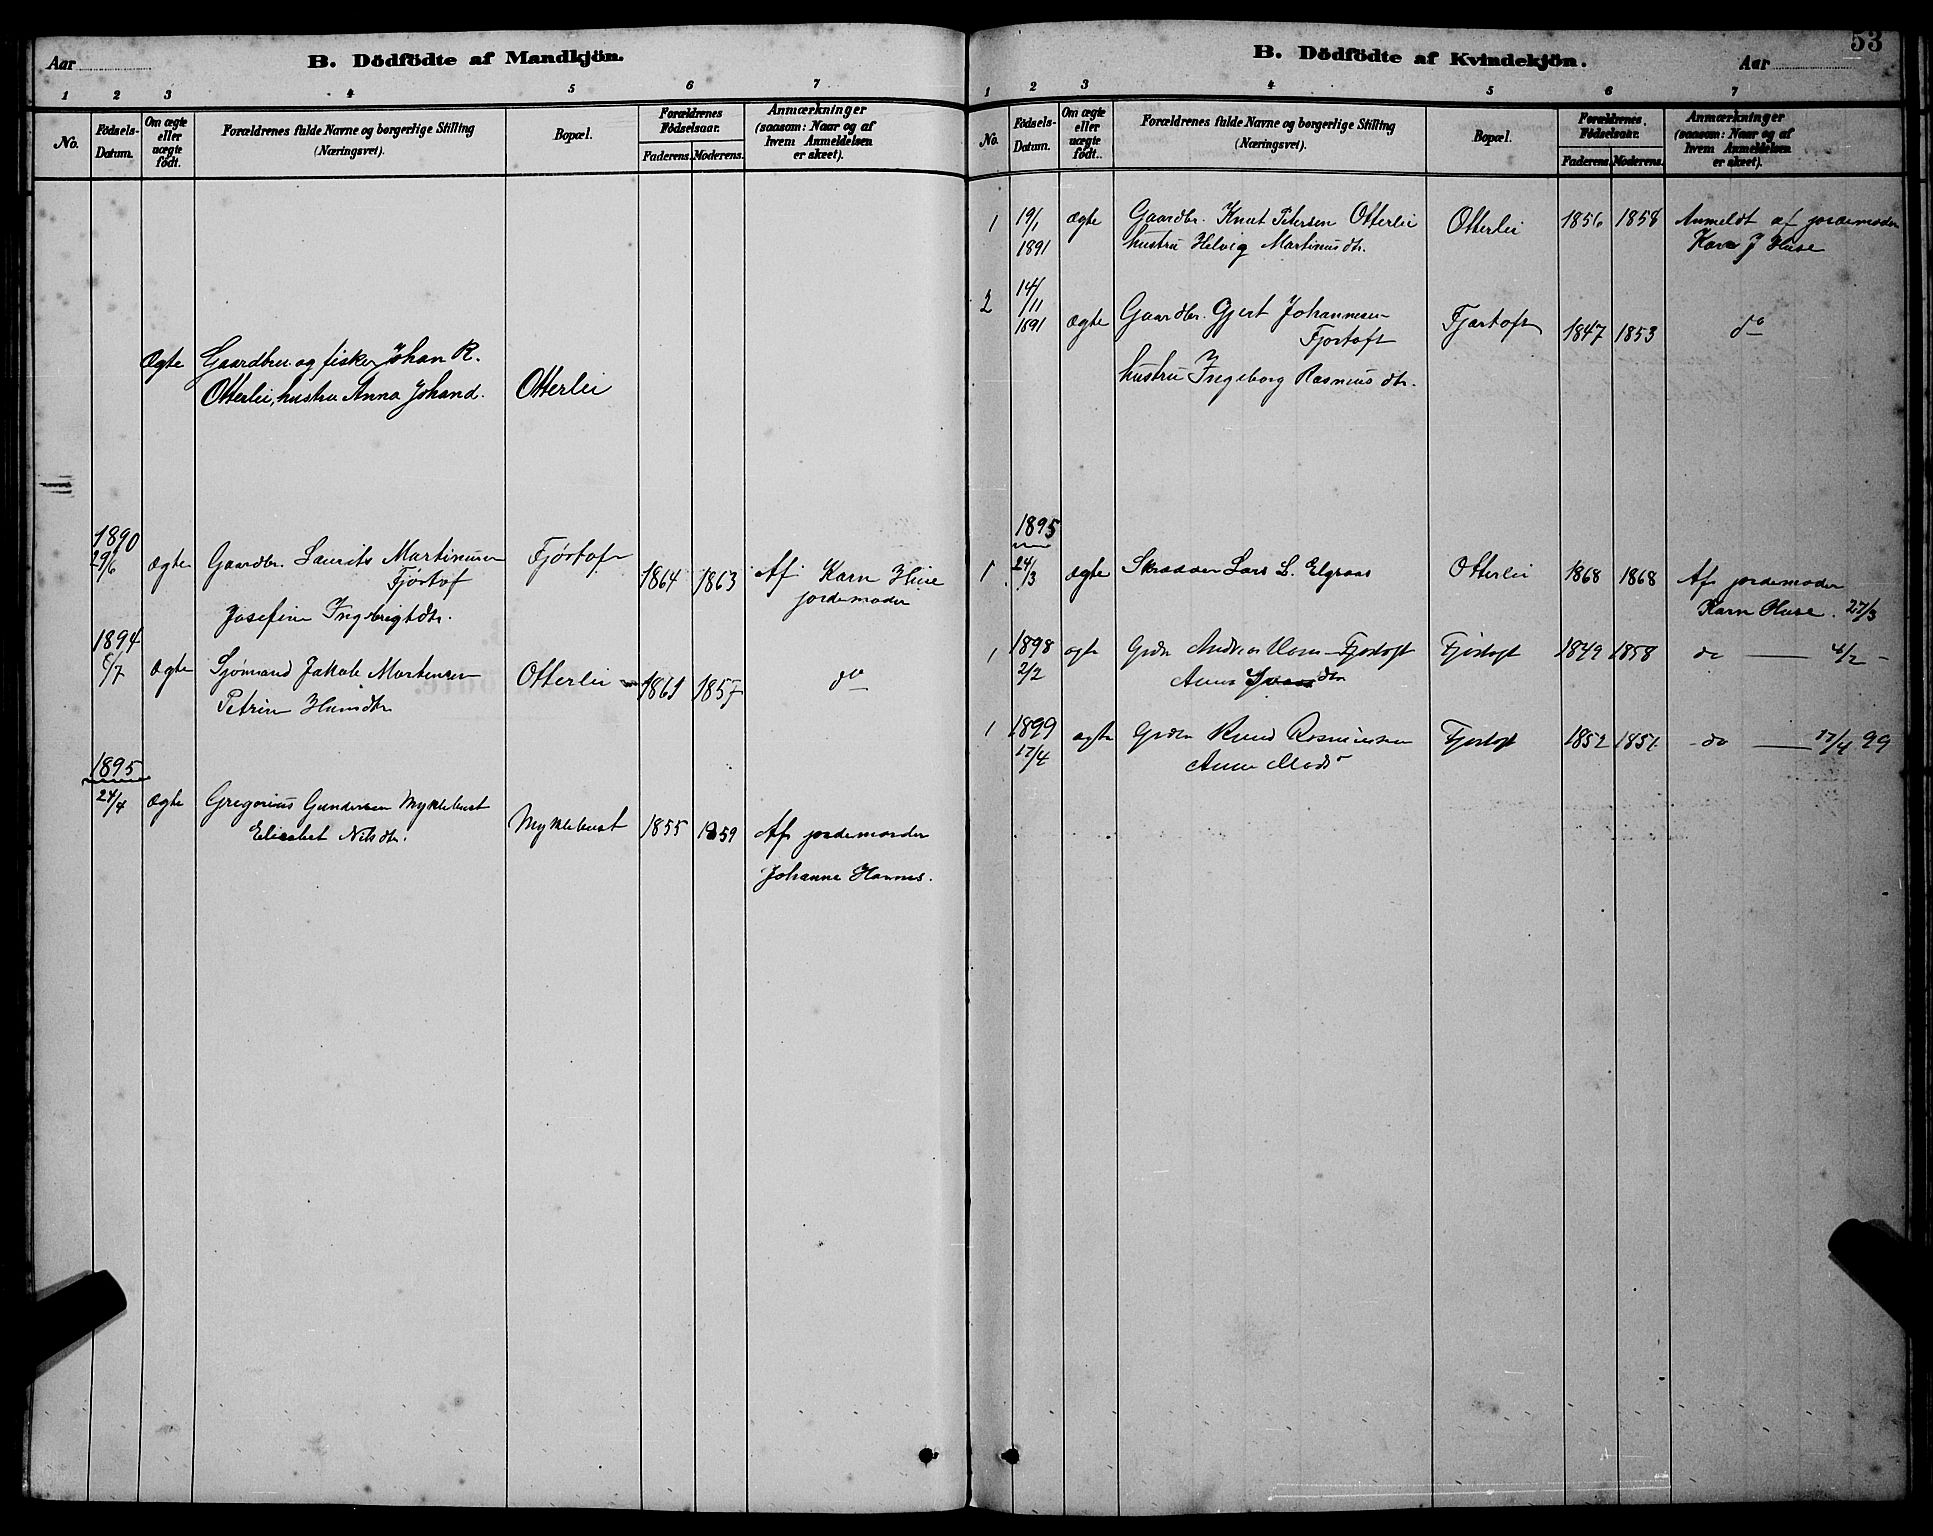 Aar
B. Dödfödte af Mandkjön.
1 2 3 4 5 6 7
No.
Födsels-
Datum.
Om ægte
eller
uægte
födt.
Forældrenes fulde Navne og borgerlige Stilling
(Næringsvei).
Bopæl.
Forældrenes
Födselsaar.
Faderens. Moderens.
Anmærkninger
(saasom: Naar og af
hvem Anmeldelsen
er skeet).
Ægte Gaardbru. og fisker Johan R.
Otterlei, hustru Anna Johand. Otterlei
1890
29/6 Ægte Gaardbr. Laurits Martinusen Fjørtoft 1864 1863 Af Karn Huse
Fjørtof jordemoder
Josefine Ingebrigtdtr.
1894
6/7 Ægte Sjømand Jakob Martensen Otterlei 1861 1857 do
Petrine
1895
24/4 Ægte Gregorius Gundersen Myklebust Myklebust 1855 1859 Af jordemorder
Elisabet Nilsdtr.
Johanna Hamnes.
53
B. Dödfödte af Kvindekjön.
Aar
1 2 3 4 5 6 7
No.
Födsels-
Datum.
Om ægte
eller
uægte
födt.
Forældrenes fulde Navne og borgerlige Stilling
(Næringsvei).
Bopæl.
Forældrenes
Födselsaar.
Faderens. Moderens.
Anmærkninger
(saasom: Naar og af
hvem Anmeldelsen
er skeet).
1 19/1 ægte Gaardbr. Knut Petersen Otterlei Otterlei 1856 1858 Anmeldt af jordemoder
1891 hustru Helvig Martinusdtr. Karn J Huse
2 14/11
1891 Ægte Gaardbr. Gjert Johannesen Fjørtoft 1847 1853 do
Fjortoft
hustru Ingeborg Rasmusdtr.
1895
1 24/3 Ægte Skrædder Lars L. Elgsaas Otterlei 1868 1868 Af jordemoder
Karn Huse. 27/3
1 1898 ægte Andreas Fjørtoft Fjørtoft 1849 1858 do 4/2
2/2 Anne dtr
1 1899 ægte Knud Rasmussen Fjørtoft 1852 1851. do 17/4 99
17/4 Anne Mads